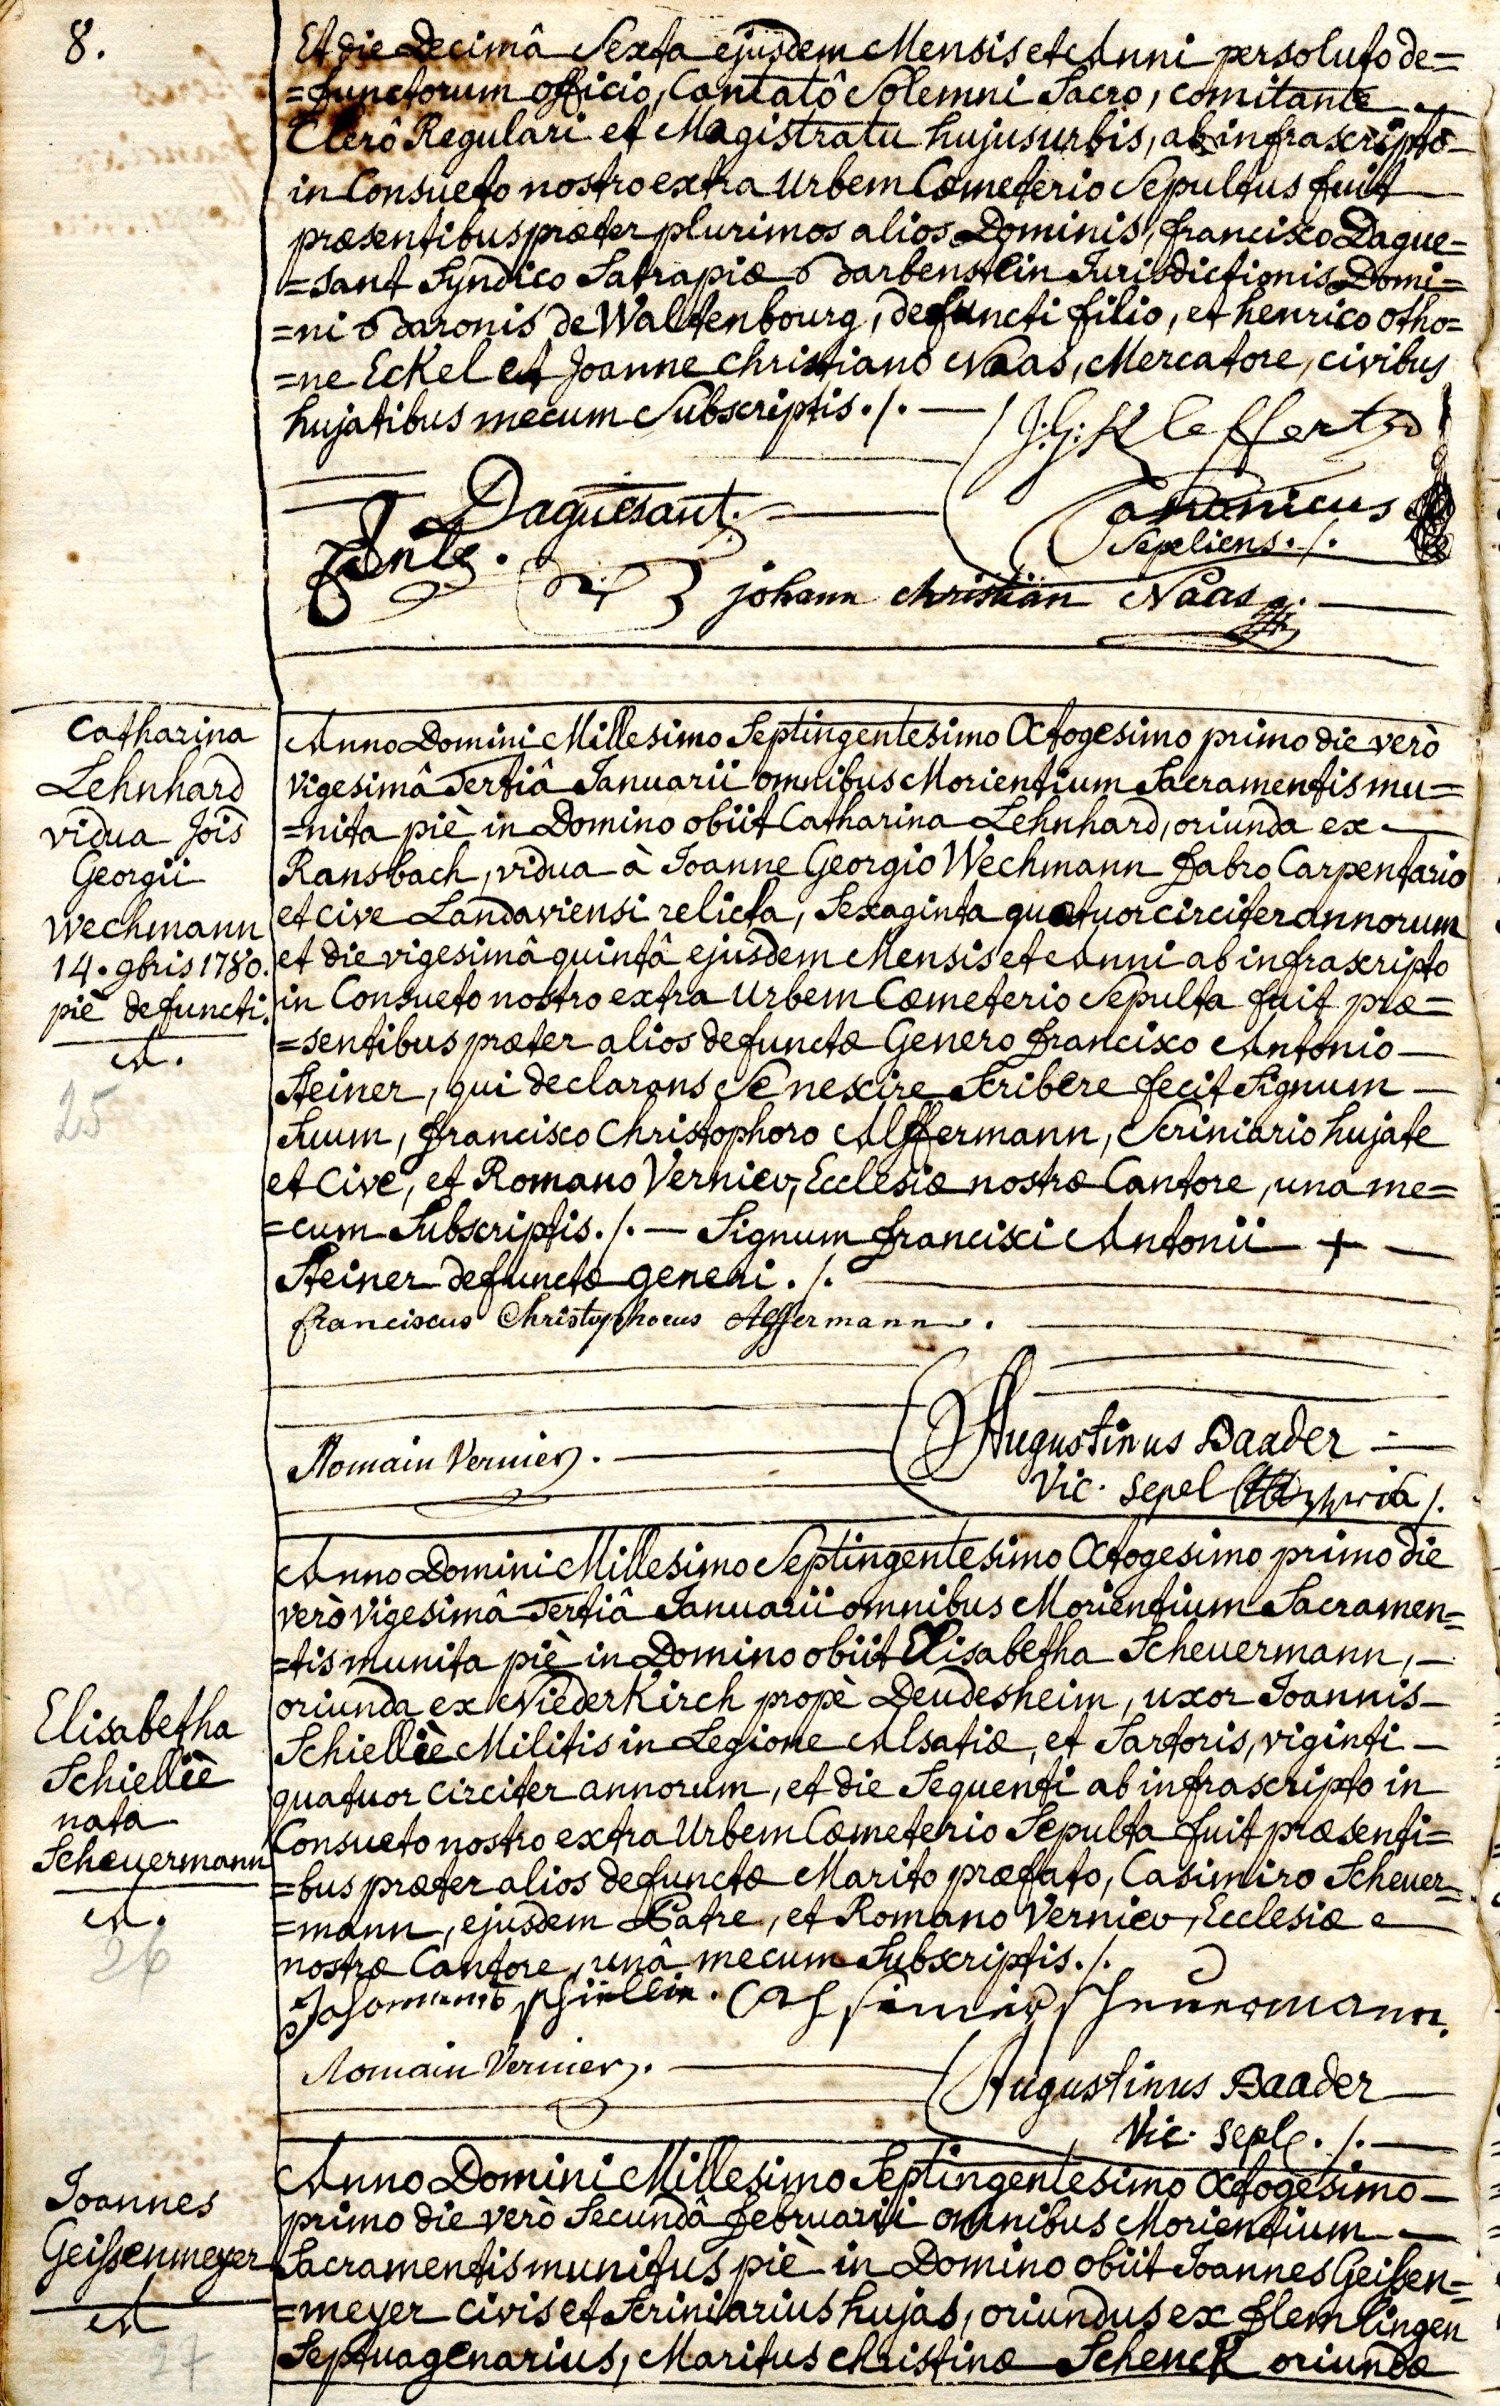 8.
Et die Decimâ Sexta ejusdem Mensis et Anni persoluto de=
=functorum officio, Cantatô Solemni Sacro, comitante
Clerô Regulari et Magistratu hujus urbis, ab infrascripto
in Consueto nostro extra Urbem Cœmeterio Sepultus fuit
præsentibus præter plurimos alios Dominis, francisco Dague=
=sant Syndico Satrapiæ Barbenstein Jurisdictionis Domi=
=ni Baronis de Waltenbourg, defuncti filio, et henrico otho=
=ne Eckel et Joanne Christiano Naas, Mercatore, civibus
hujatibus mecum Subscriptis ./. —
J: G: Kleffertz
Canonicus
Sepeliens ./.
Daguesant.
johann christian Naas
Catharina
Lehnhard
vidua Jois
Georgii
Wechmann
14. 9bris 1780.
piè defuncti.
A.
25
Anno Domini Millesimo Septingentesimo Octogesimo primo die verò
vigesimâ Tertiâ Januarii omnibus Morientium Sacramentis mu=
=nita piè in Domino obiit Catharina Lehnhard, oriunda ex
Ransbach, vidua à Joanne Georgio Wechmann fabro Carpentario
et cive Landaviensi relicta, Sexaginta quatuor circiter annorum
et die vigesimâ quintâ ejusdem Mensis et Anni ab infrascripto
in Consueto nostro extra Urbem Cœmeterio Sepulta fuit præ=
=sentibus præter alios defunctæ Genero francisco Antonio
Steiner, qui declarans Se nescire Scribere fecit Signum
Suum, francisco Christophoro Alffermann, Scriniario hujate
et Cive, et Romano Vernier, Ecclesiæ nostræ Cantore, una me=
=cum Subscriptis ./. — Signum francisci Antonii +
Steiner defunctæ generi ./.
franciscus Christophorus Alffermann.
Romain Vernier.
Augustinus Baader
Vic. Sepel
Elisabetha
Schielliè
nata
Scheuermann
A.
26
Anno Domini Millesimo Septingentesimo Octogesimo primo die
verò vigesimâ Tertiâ Januarii omnibus Morientium Sacramen=
=tis munita piè in Domino obiit Elisabetha Scheuermann,
oriunda ex Niederkirch propè Deudesheim, uxor Joannis
Schielliè Militis in Legione Alsatiæ, et Sartoris, viginti
quatuor circiter annorum, et die Sequenti ab infrascripto in
Consueto nostro extra Urbem Cœmeterio Sepulta fuit præsenti=
=bus præter alios defunctæ Marito præfato, Casimiro Scheuer=
=mann, ejusdem Patre, et Romano Vernier, Ecclesiæ
nostræ Cantore, unâ mecum Subscriptis ./.
Romain Vernier.
Augustinus Baader
Vic. Sepl. ./.
Joannes
Geissenmeyer
A
27
Anno Domini Millesimo Septingentesimo Octogesimo
primo die verò Secundâ februarii omnibus Morientium
Sacramentis munitus piè in Domino obiit Joannes Geissen=
=meyer civis et Scriniarius hujas, oriundus ex flemlingen
Septuagenarius, Maritus Christinæ Schenck oriundæ